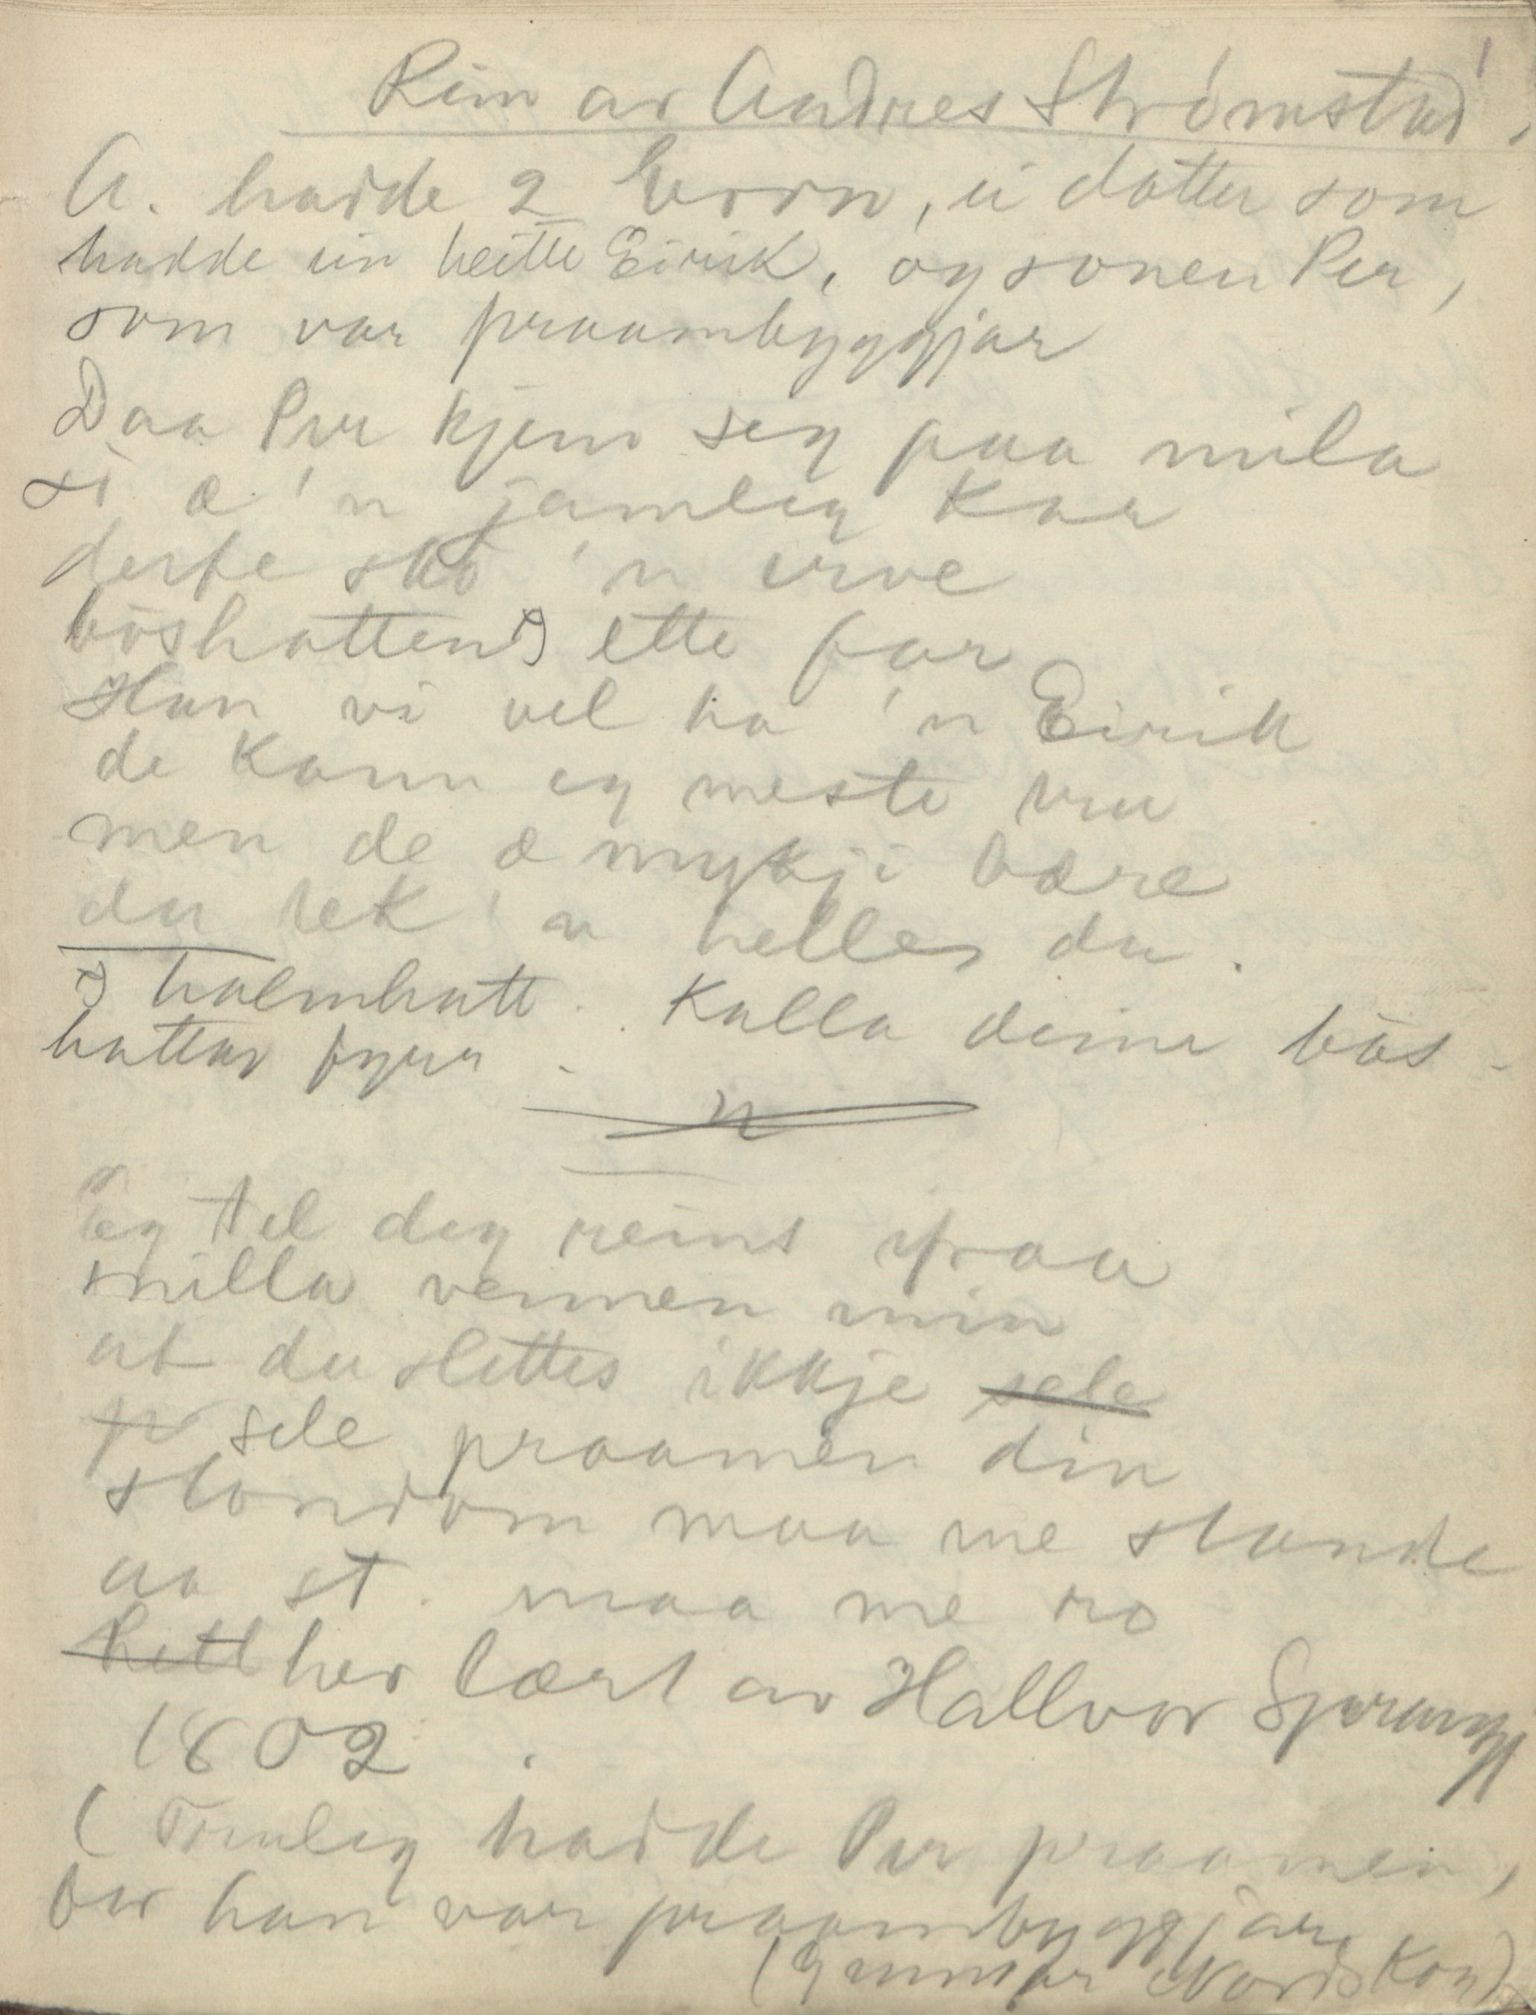 1
Rim av Andres Strømstad,
A. hadde 2 born, ei dotter som
hadde ein heitte Eirik, og sonen Per,
som var praambyggjar
Daa Per kjem seg paa mila
så æ 'n jamleg kar
derfe sko 'n erve
böshatten ¹) ette far
Han vi vel ha 'n Eirik
de kann eg meste tru
men de æ mykji bære
du tek 'n helles du.
¹) halmhatt. Kalla deim bös-
hattar fyrr.
n
Eg tel deg reint ifraa
snilla vennen min
at du slettes ikkje sele
sele praamen din
stondom maa me stande
aa st. maa me ro
her lært av Hallvor
1802.
( Truleg hadde Per praamen,
for han var praambyggjar.
(Gunnar Nordskog)